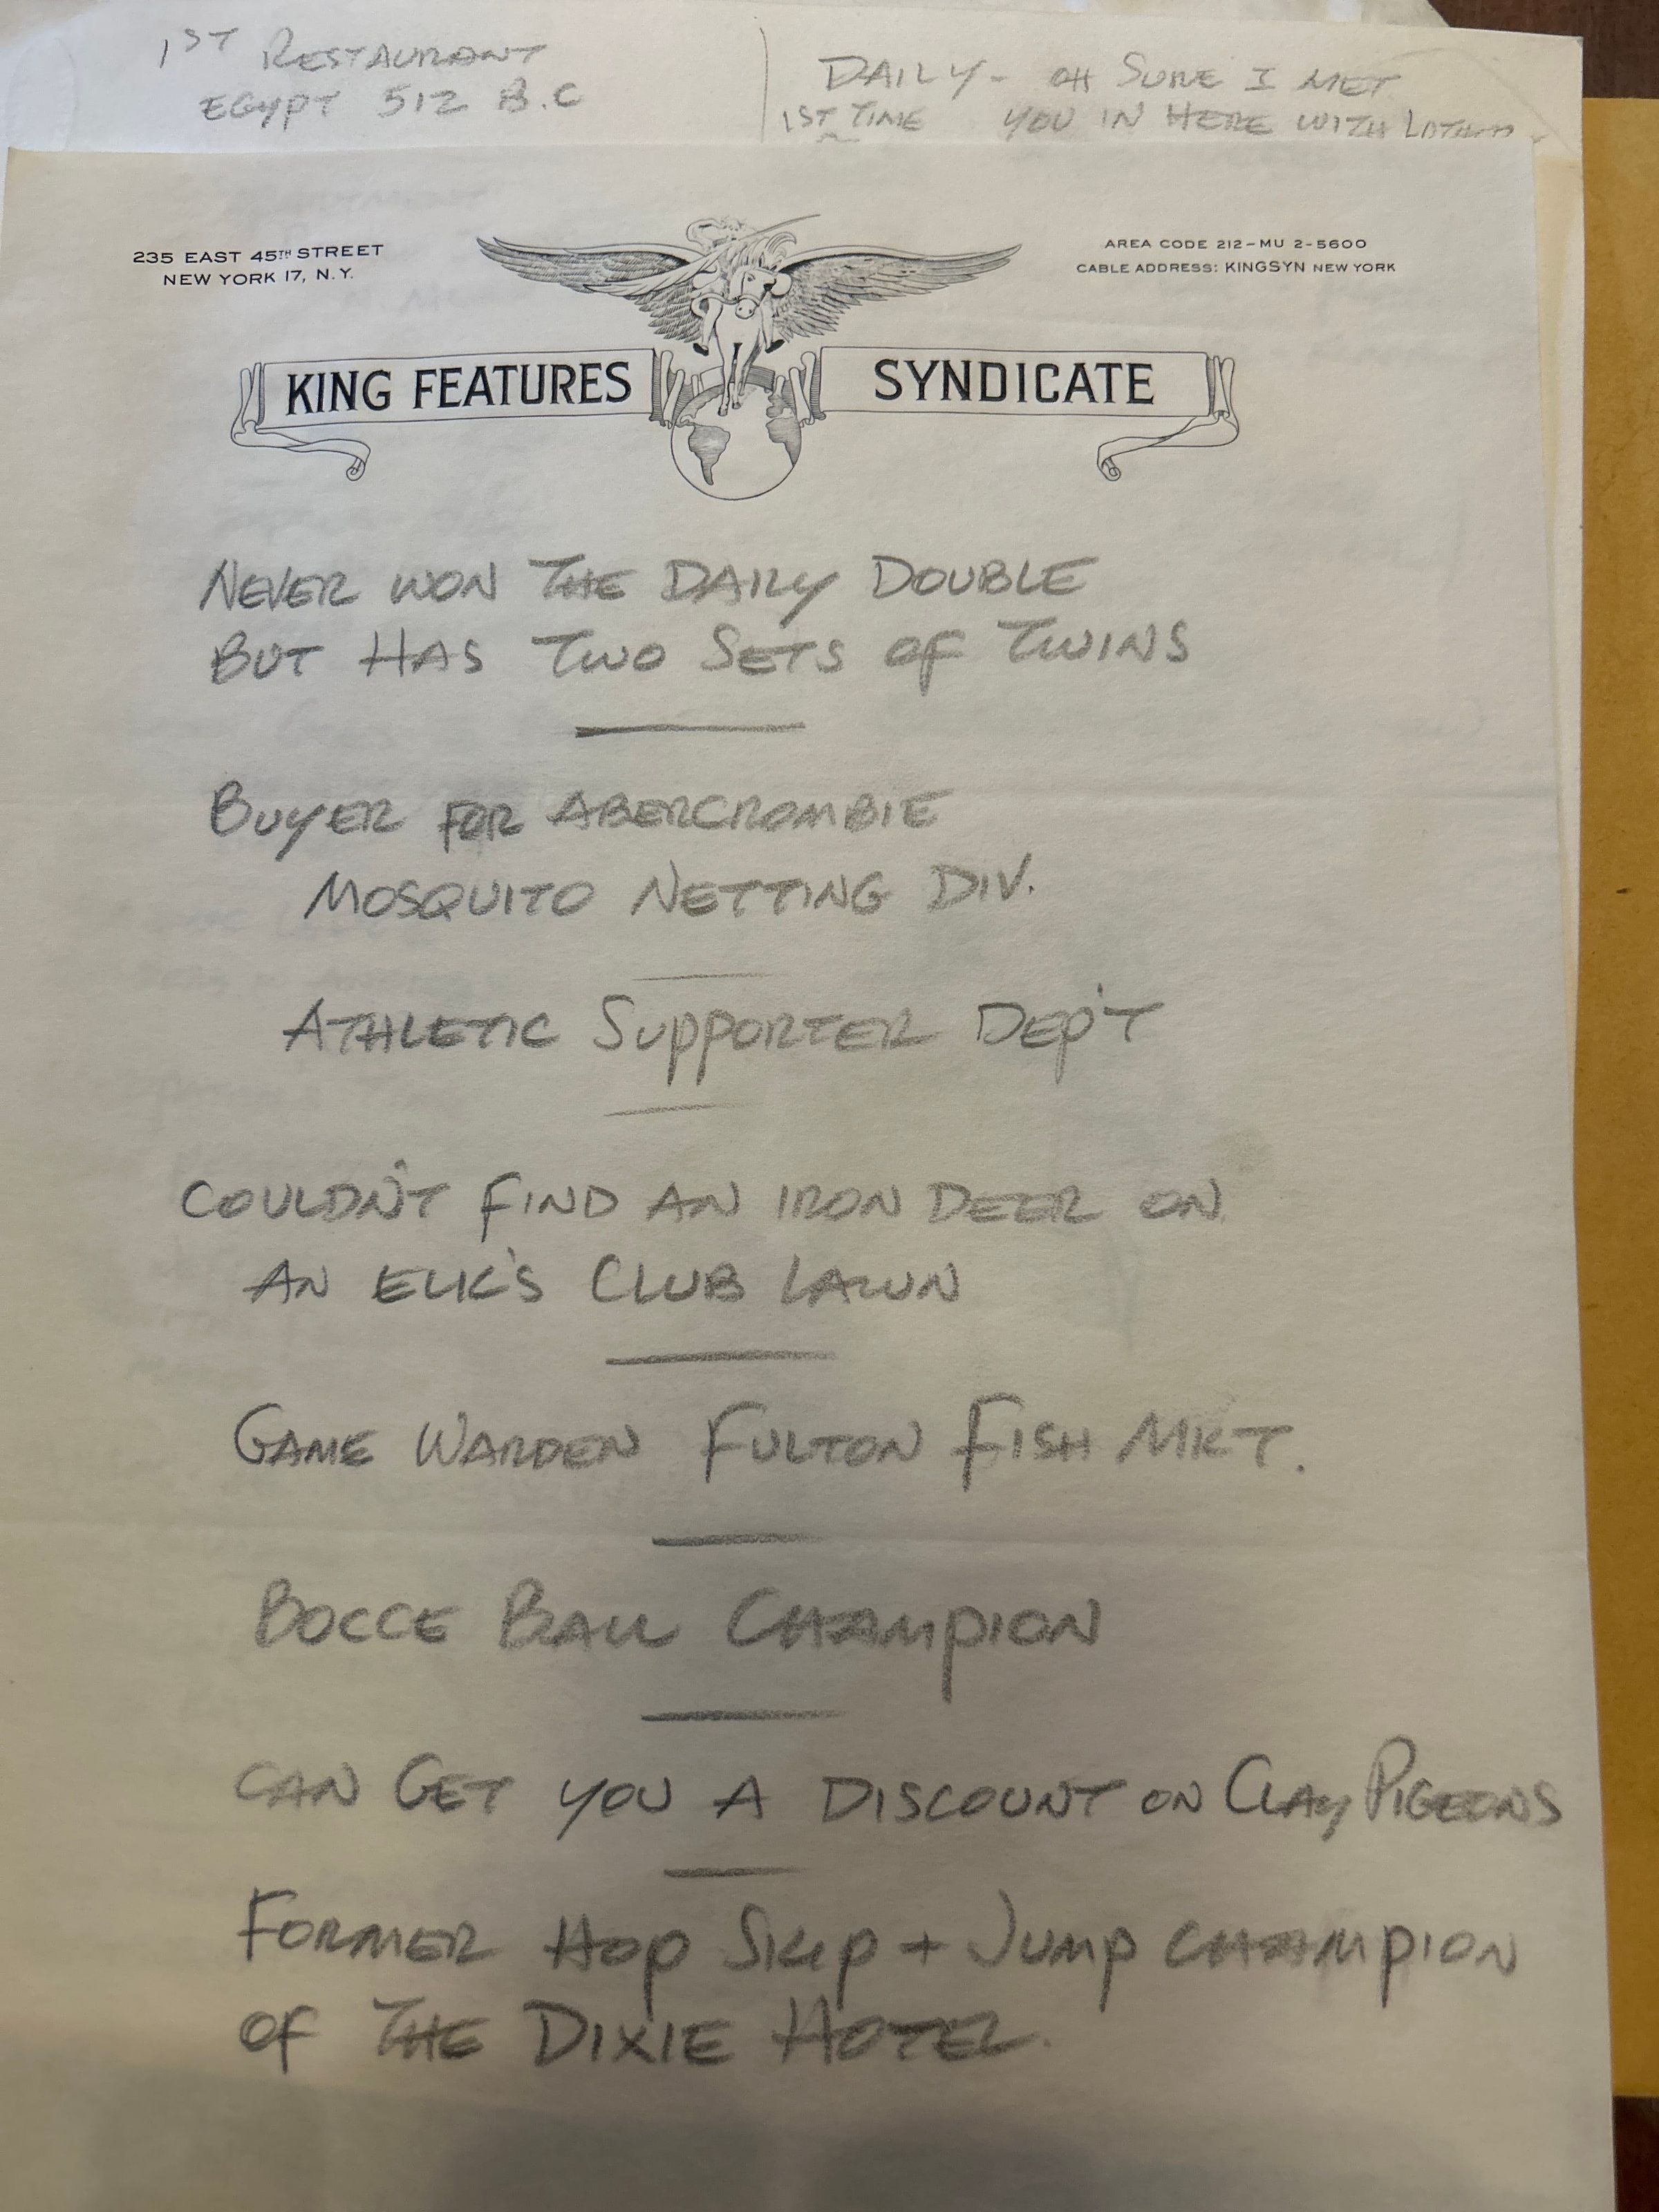 1ST RESTAURANT
EGYPT 512 B.C
DAILY - OH SURE I MET
1ST TIME YOU IN HERE WITH
235 EAST 45TH STREET
NEW YORK 17, N.Y.
AREA CODE 212-MU 2-5600
CABLE ADDRESS: KINGSYN NEW YORK
KING FEATURES SYNDICATE
NEVER WON THE DAILY DOUBLE
BUT HAS TWO SETS OF TWINS
BUYER FOR ABERCROMBIE
MOSQUITO NETTING DIV.
ATHLETIC SUPPORTER DEP'T
COULDN'T FIND AN IRON DEER ON
AN ELK'S CLUB LAWN
GAME WARDEN FULTON FISH MKT.
BOCCE BALL CHAMPION
CAN GET YOU A DISCOUNT ON CLAY PIGEONS
FORMER HOP SKIP + JUMP CHAMPION
OF THE DIXIE HOTEL.